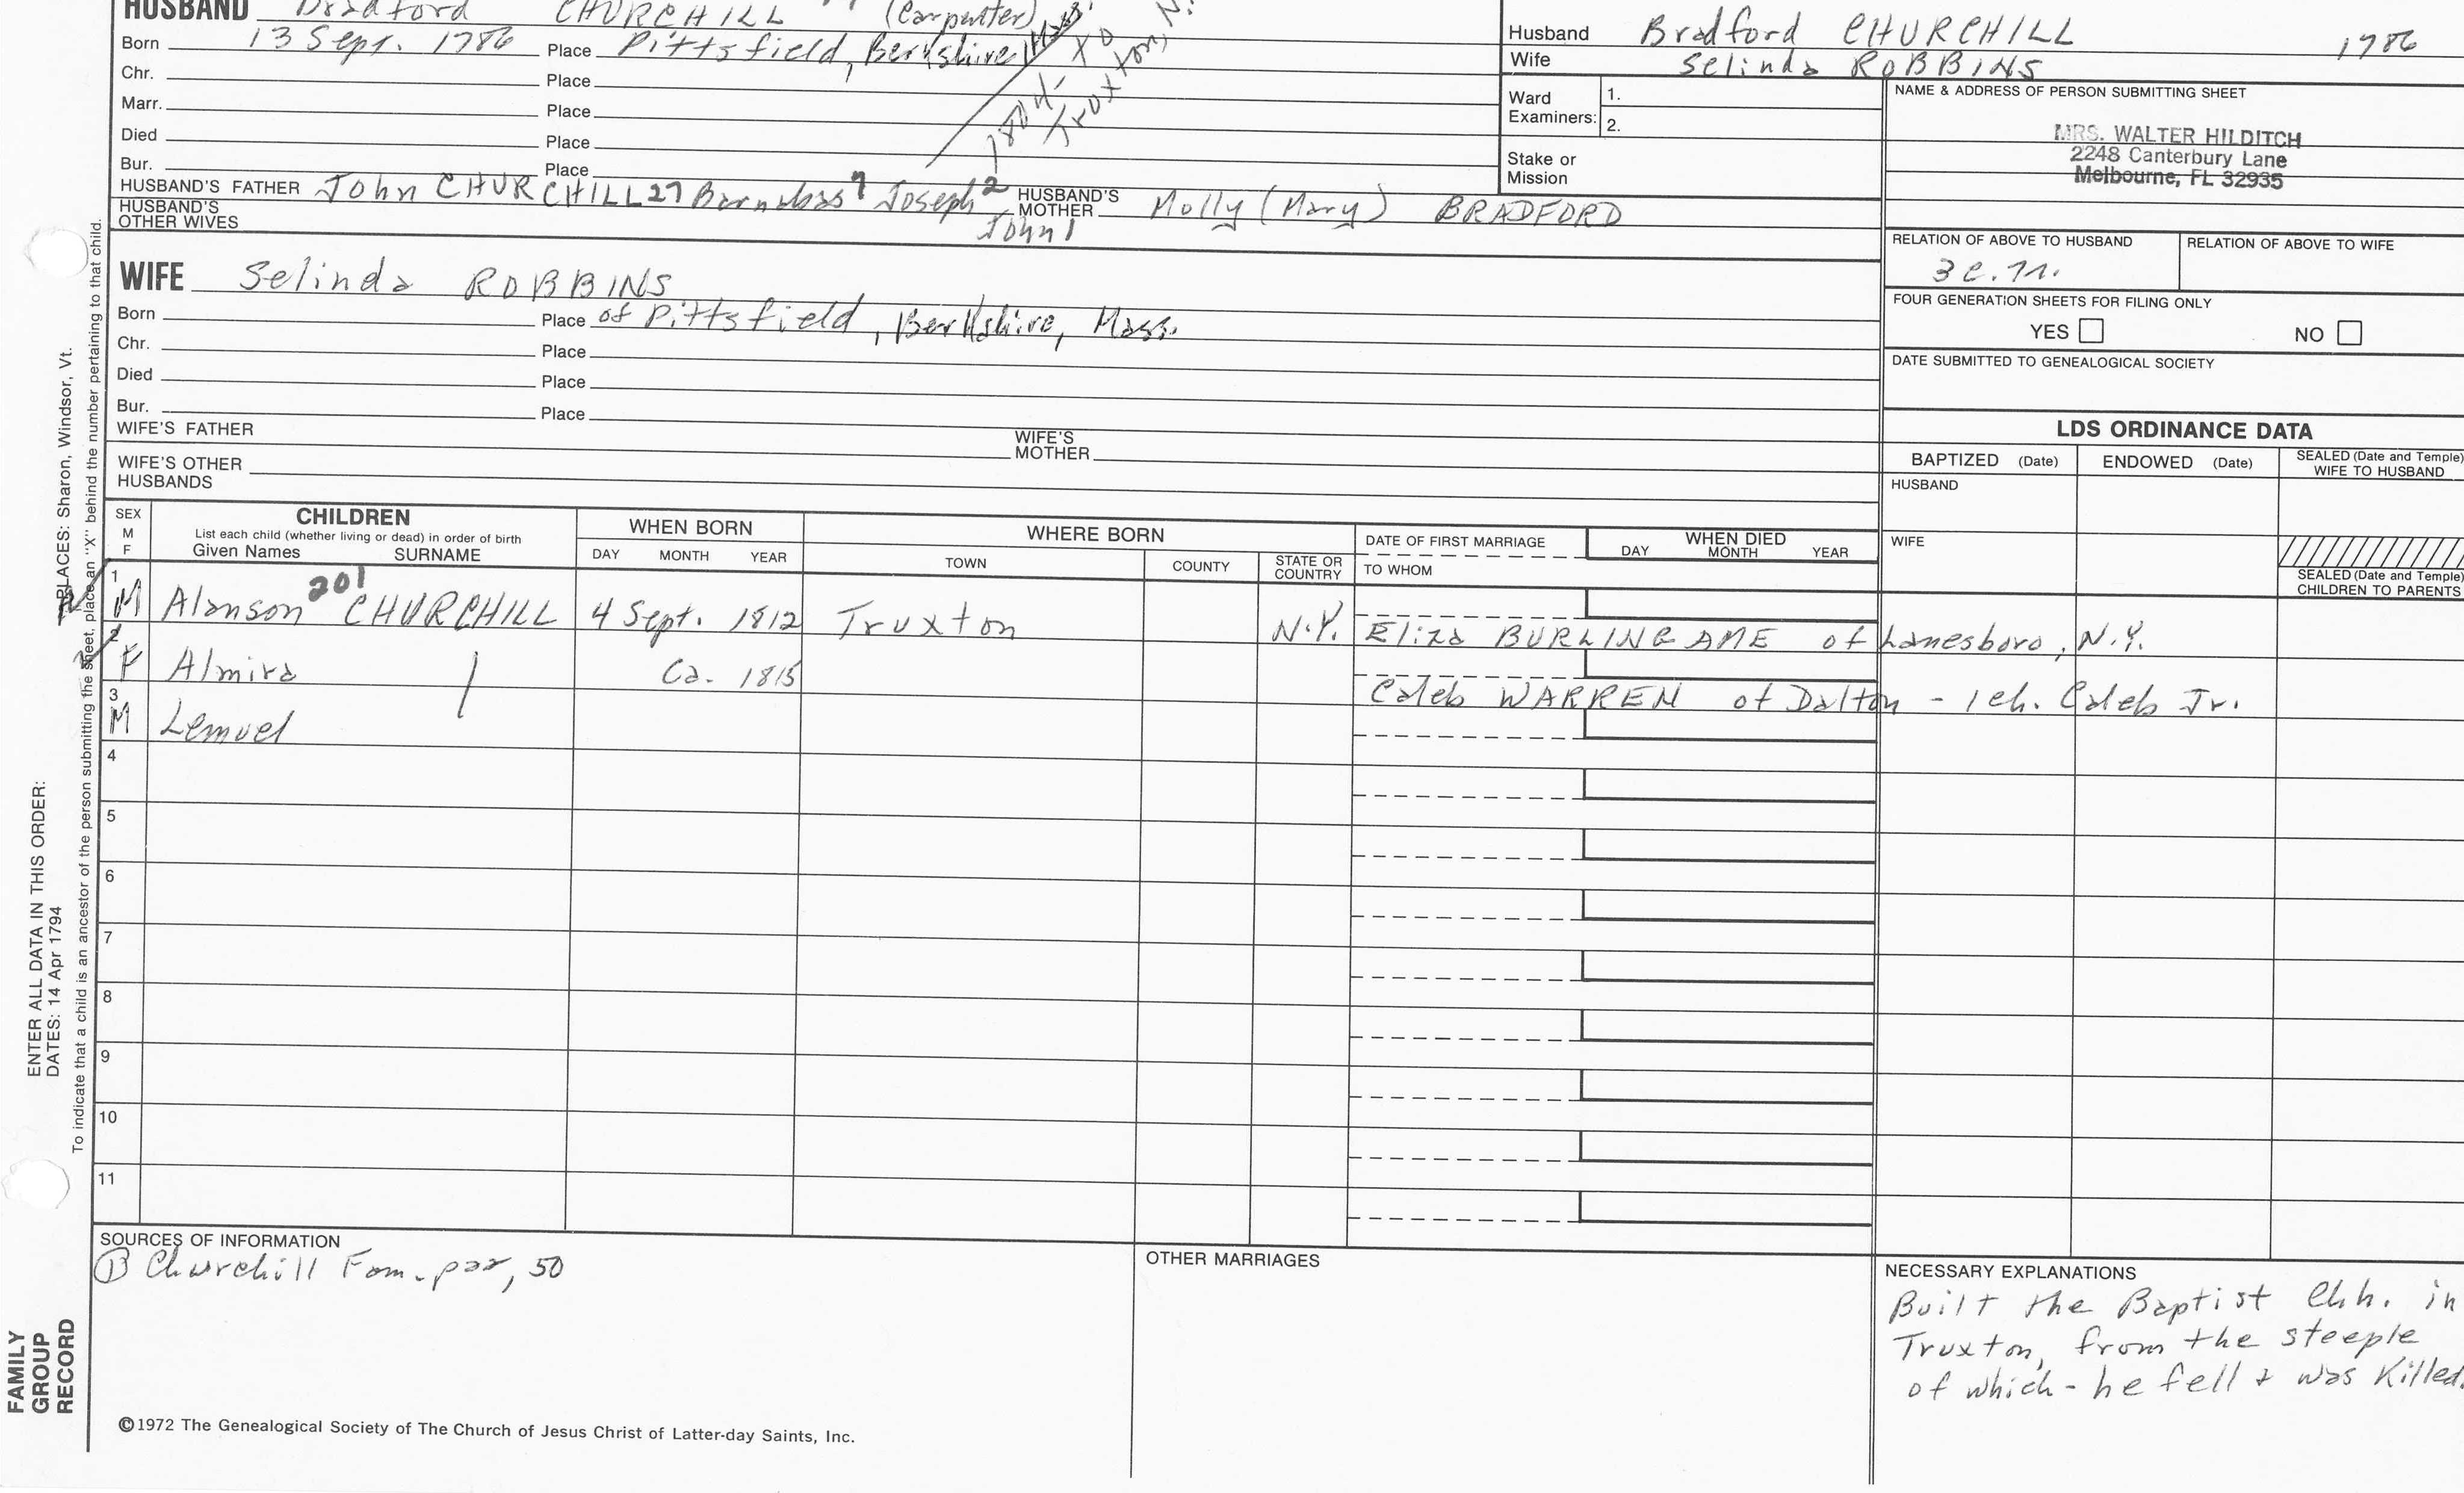 HUSBAND Bradford CHURCHILL (Carpenter)
Born 13 Sept. 1786 Place Pittsfield, Berkshire, Mass.
1804 - to
Truxton, N.
Chr. Place
Marr. Place
Died Place
Bur. Place
HUSBAND'S FATHER John CHURCHILL 27 Barnabas 7 Joseph 2 John 1 HUSBAND'S MOTHER Molly (Mary) BRADFORD
HUSBAND'S OTHER WIVES
WIFE Selinda ROBBINS
Born Place of Pittsfield, Berkshire, Mass.
Chr. Place
Died Place
Bur. Place
WIFE'S FATHER WIFE'S MOTHER
WIFE'S OTHER HUSBANDS
Husband Bradford CHURCHILL 1786
Wife Selinda ROBBINS
Ward Examiners: 1.
2.
Stake or Mission
NAME & ADDRESS OF PERSON SUBMITTING SHEET
MRS. WALTER HILDITCH
2248 Canterbury Lane
Melbourne, FL 32935
RELATION OF ABOVE TO HUSBAND RELATION OF ABOVE TO WIFE
FOUR GENERATION SHEETS FOR FILING ONLY
YES NO
DATE SUBMITTED TO GENEALOGICAL SOCIETY
LDS ORDINANCE DATA
BAPTIZED (Date) ENDOWED (Date) SEALED (Date and Temple) WIFE TO HUSBAND
HUSBAND
WIFE
SEALED (Date and Temple) CHILDREN TO PARENTS
SEX M F CHILDREN WHEN BORN WHERE BORN DATE OF FIRST MARRIAGE WHEN DIED
List each child (whether living or dead) in order of birth
Given Names SURNAME DAY MONTH YEAR TOWN COUNTY STATE OR COUNTRY TO WHOM DAY MONTH YEAR
1 M Alanson 201 CHURCHILL 4 Sept. 1812 Truxton N.Y. Eliza BURLINGAME of Lanesboro, N.Y.
2 F Almira Ca. 1815 Caleb WARREN of Dalton - 1 ch. Caleb Jr.
3 M Lemuel
4
5
6
7
8
9
10
11
SOURCES OF INFORMATION
① Churchill Fam. 50
OTHER MARRIAGES
NECESSARY EXPLANATIONS
Built the Baptist Chh. in
Truxton, from the steeple
of which - he fell & was Killed.
©1972 The Genealogical Society of The Church of Jesus Christ of Latter-day Saints, Inc.
FAMILY GROUP RECORD
ENTER ALL DATA IN THIS ORDER:
DATES: 14 Apr 1794
PLACES: Sharon, Windsor, Vt.
To indicate that a child is an ancestor of the person submitting the sheet, place an "X" behind the number pertaining to that child.